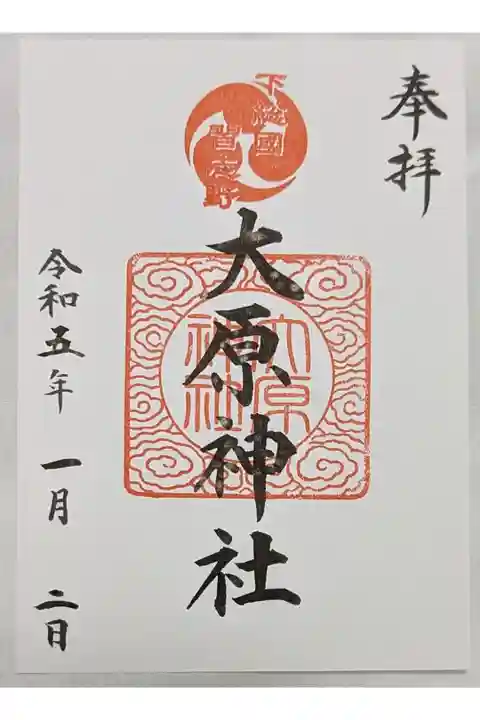 奉拝
下總國
習志野
大原神社
大原
神社
令和五年 一月 二日